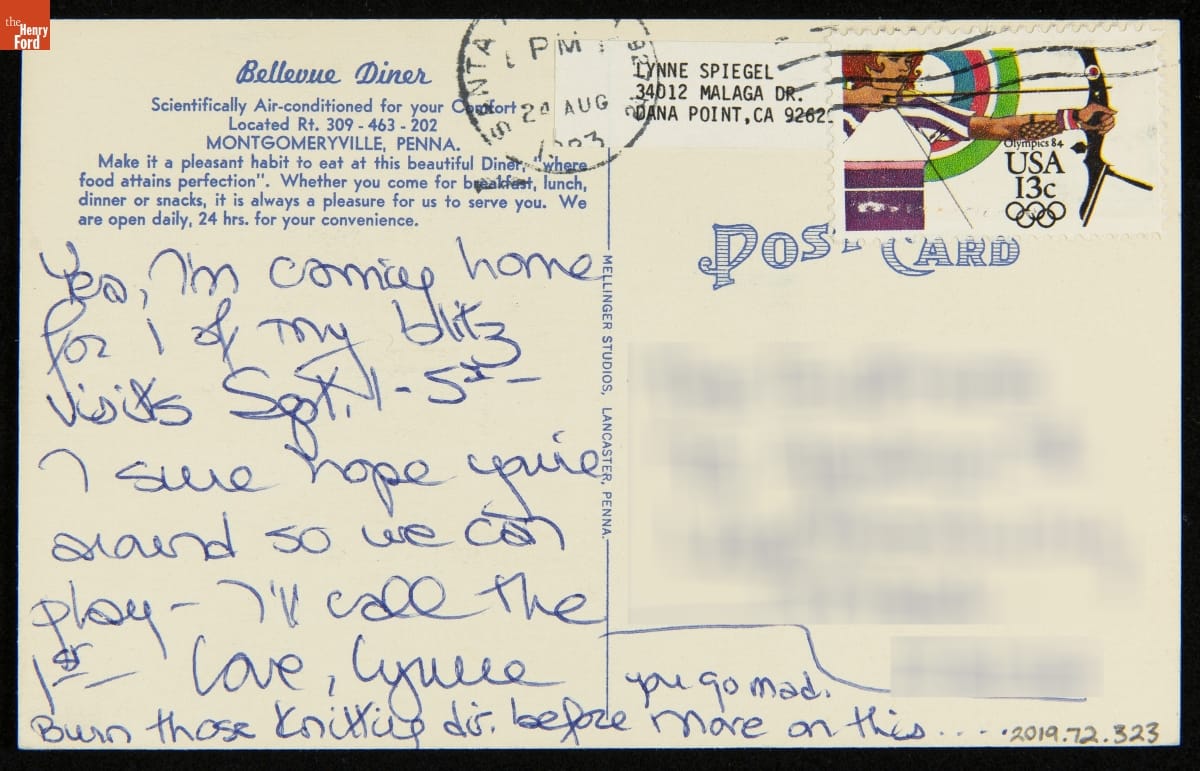 the
Henry
Ford
Bellevue Diner
Scientifically Air-conditioned for your Comfort
Located Rt. 309 - 463 - 202
MONTGOMERYVILLE, PENNA.
Make it a pleasant habit to eat at this beautiful Diner, "where
food attains perfection". Whether you come for breakfast, lunch,
dinner or snacks, it is always a pleasure for us to serve you. We
are open daily, 24 hrs. for your convenience.
Yes, I'm coming home
for 1 of my blitz
visits Sept. 1 - 5th -
I sure hope you're
around so we can
play - I'll call the
1st Love, Lynne
Burn those knitting dir. before more on this.....
you go mad.
MELLINGER STUDIOS, LANCASTER, PENNA.
SANTA
PM
24 AUG
LYNNE SPIEGEL
34012 MALAGA DR.
DANA POINT, CA 92629
Olympics 84
USA
13c
POST CARD
2019.72.323